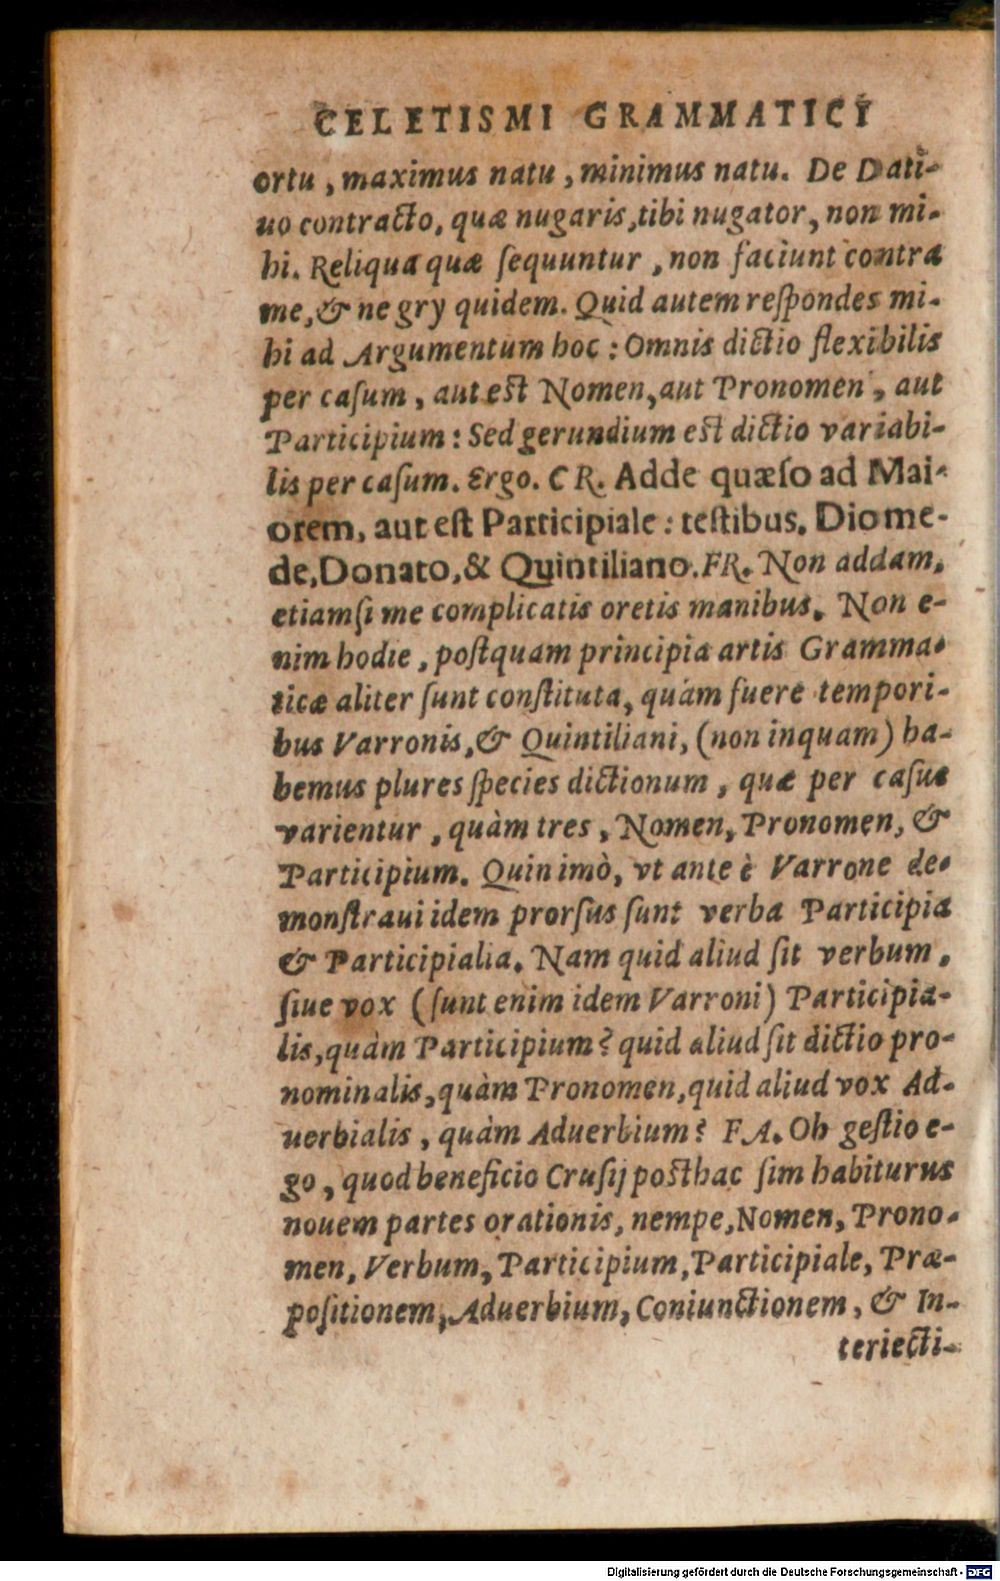 CELETISMI GRAMMATICI
ortu, maximus natu, minimus natu. De Dati-
uo contracto, quæ nugaris, tibi nugator, non mi-
hi. Reliqua quæ ſequuntur, non faciunt contra
me, & ne gry quidem. Quid autem reſpondes mi-
hi ad Argumentum hoc: Omnis dictio flexibilis
per caſum, aut est Nomen, aut Pronomen, aut
Participium: Sed gerundium est dictio variabi-
lis per caſum. Ergo. CR. Adde quæſo ad Mai-
orem, aut eſt Participiale: teſtibus. Diome-
de, Donato, & Quintiliano. FR. Non addam,
etiamſi me complicatis oretis manibus. Non e-
nim hodie, poſtquam principia artis Gramma-
ticæ aliter ſunt conſtituta, quàm fuere tempori-
bus Varronis, & Quintiliani, (non inquam) ha-
bemus plures ſpecies dictionum, quæ per caſus
varientur, quàm tres, Nomen, Pronomen, &
Participium. Quin imò, vt ante è Varrone de-
monſtraui idem prorſus ſunt verba Participia
& Participialia. Nam quid aliud ſit verbum,
ſiue vox (ſunt enim idem Varroni) Participia-
lis, quàm Participium? quid aliud ſit dictio pro-
nominalis, quàm Pronomen, quid aliud vox Ad-
uerbialis, quàm Aduerbium? FA. Oh geſtio e-
go, quod beneficio Cruſij posthac ſim habiturus
nouem partes orationis, nempe, Nomen, Prono-
men, Verbum, Participium, Participiale, Præ-
poſitionem, Aduerbium, Coniunctionem, & In-
teriecti-
Digitalisierung gefördert durch die Deutsche Forschungsgemeinschaft - DFG